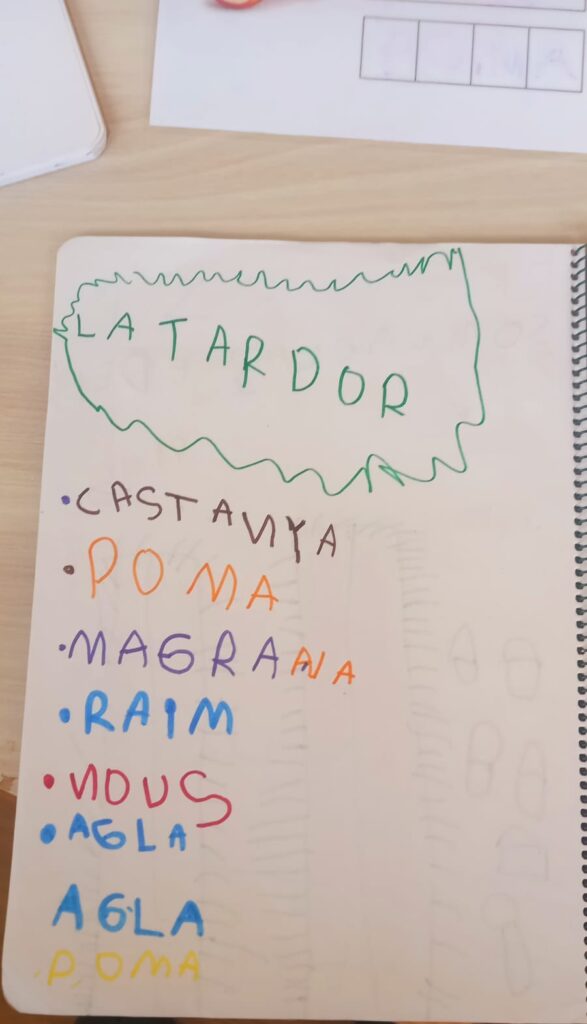 LA TARDOR
• CASTANYA
• POMA
• MAGRANA
• RAIM
• NOUS
• AGLA
AGLA
POMA